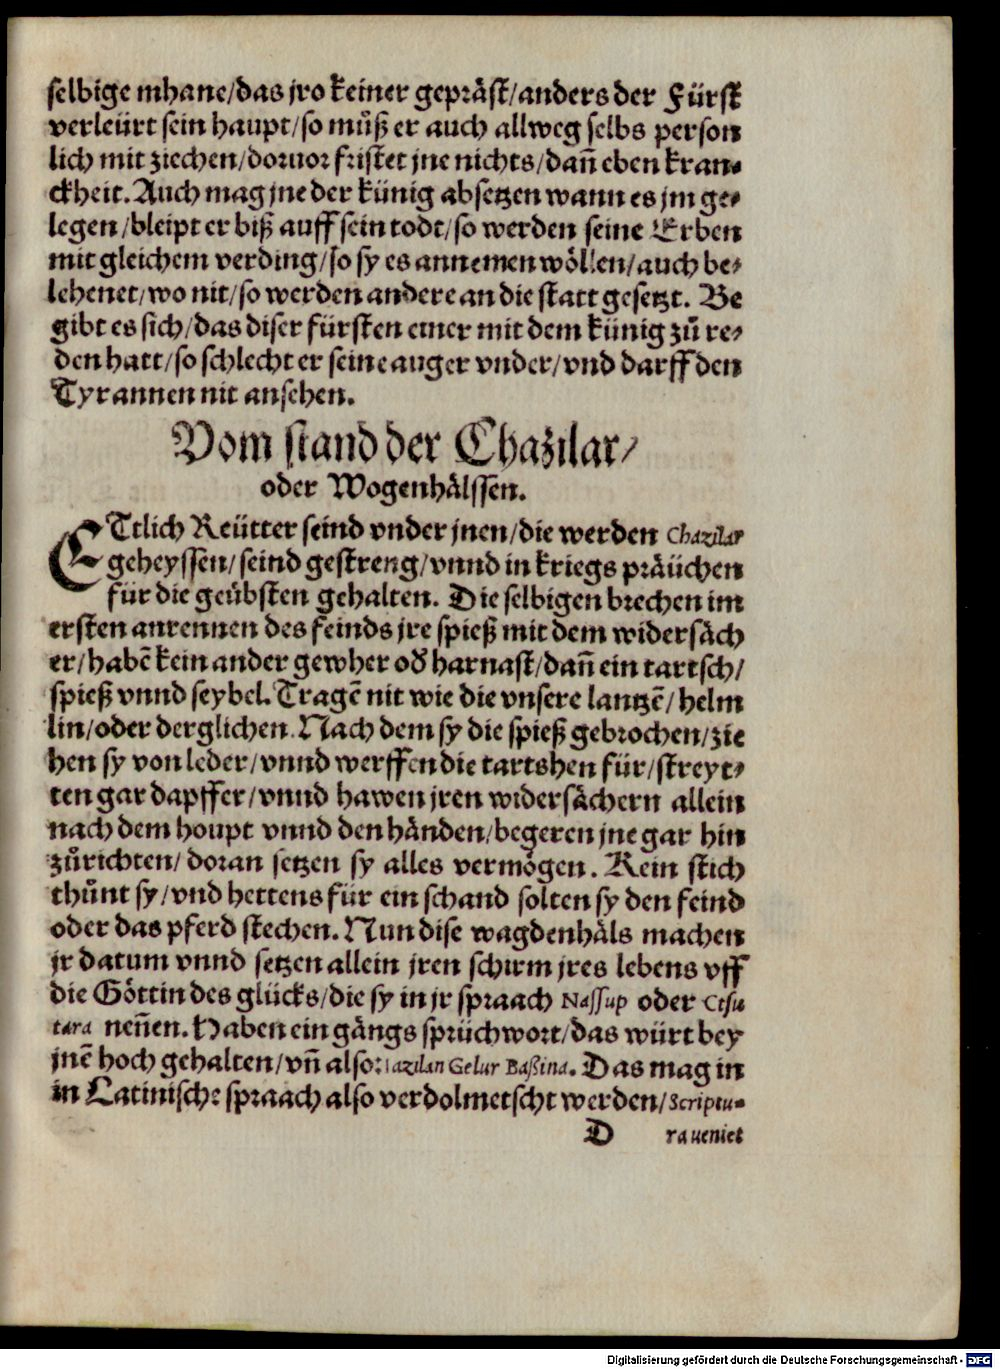 selbige mhane/das jro keiner gepräst/anders der Fürst
verleürt sein haupt/so můß er auch allweg selbs person
lich mit ziechen/doruor fristet jne nichts/dañ eben kran-
ckheit. Auch mag jne der künig absetzen wann es jm ge-
legen/bleipt er biß auff sein todt/so werden seine Erben
mit gleichem verding/so sy es annemen wöllen/auch be-
lehenet/wo nit/so werden andere an die statt gesetzt. Be
gibt es sich/das diser fürsten einer mit dem künig zů re-
den hatt/so schlecht er seine auger vnder/vnd darff den
Tyrannen nit ansehen.
Vom stand der Chazilar/
oder Wogenhälssen.
ETtlich Reütter seind vnder jnen/die werden Chazilar
geheyssen/seind gestreng/vnnd in kriegs präüchen
für die geübsten gehalten. Die selbigen brechen im
ersten anrennen des feinds jre spieß mit dem widersäch
er/habē kein ander gewher od̃ harnast/dañ ein tartsch/
spieß vnnd seybel. Tragē nit wie die vnsere lantzē/helm
lin/oder derglichen. Nach dem sy die spieß gebrochen/zie
hen sy von leder/vnnd werffen die tartshen für/streyt-
ten gar dapffer/vnnd hawen jren widersächern allein
nach dem houpt vnnd den händen/begeren jne gar hin
zůrichten/doran setzen sy alles vermögen. Kein stich
thůnt sy/vnd hettens für ein schand solten sy den feind
oder das pferd stechen. Nun dise wagdenhäls machen
jr datum vnnd setzen allein jren schirm jres lebens vff
die Göttin des glücks/die sy in jr spraach Nassup oder Ctsu
tara neñen. Haben ein gängs sprüchwort/das würt bey
jnē hoch gehalten/vñ also: Iazilan Gelur Baßina. Das mag in
in Latinische spraach also verdolmetscht werden/Scriptu-
D raueniet
Digitalisierung gefördert durch die Deutsche Forschungsgemeinschaft - DFG